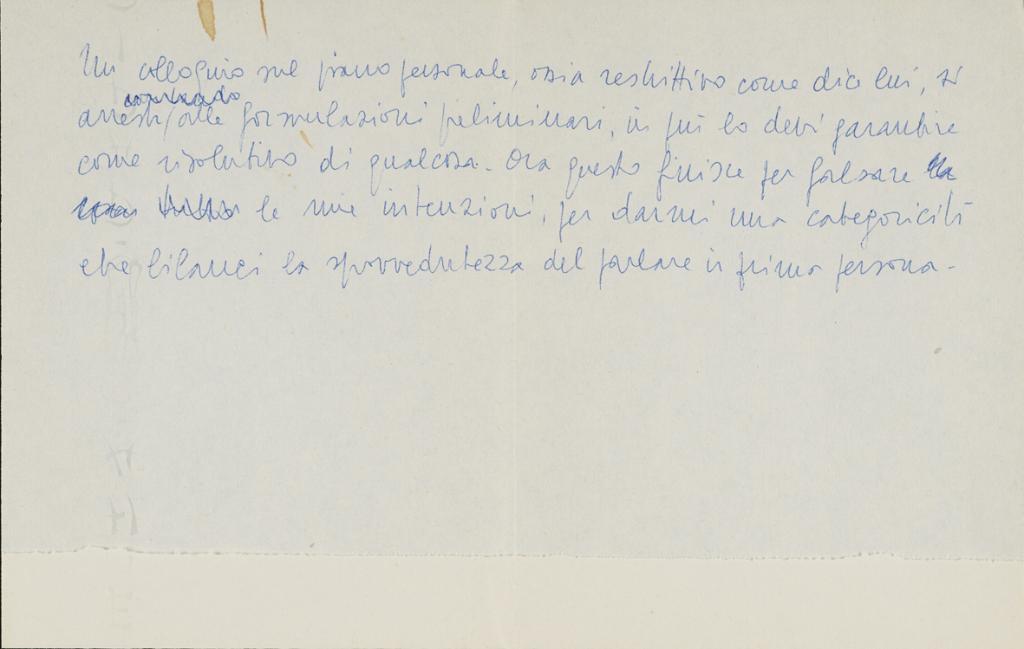 Un colloquio sul piano personale, ossia restrittivo come dice lui, si
arresta alle formulazioni preliminari, in più lo devi garantire
come risolutivo di qualcosa. Ora questo finisce per falsare
le mie intenzioni, per darmi una categoricità
che bilanci la sprovvedutezza del parlare in prima persona.